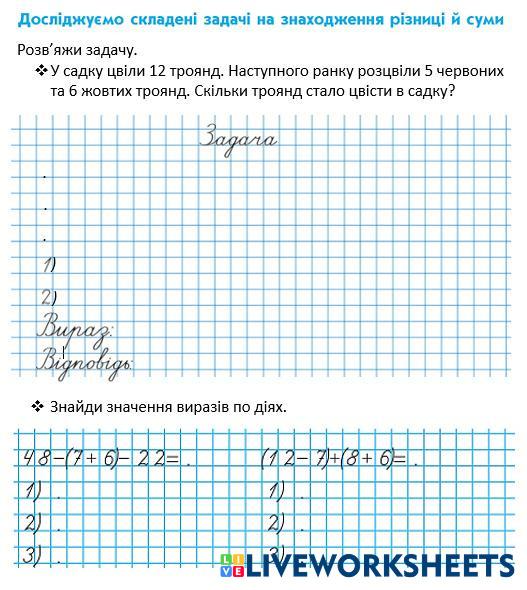 Досліджуємо складені задачі на знаходження різниці й суми
Розв'яжи задачу.
❖У садку цвіли 12 троянд. Наступного ранку розцвіли 5 червоних
та 6 жовтих троянд. Скільки троянд стало цвісти в садку?
Задача
.
.
.
1)
2)
Вираз:
Відповідь:
❖ Знайди значення виразів по діях.
48-(7+6)-22= . (12-7)+(8+6)= .
1) . 1) .
2) . 2) .
3) . 3) .
LIVE LIVEWORKSHEETS